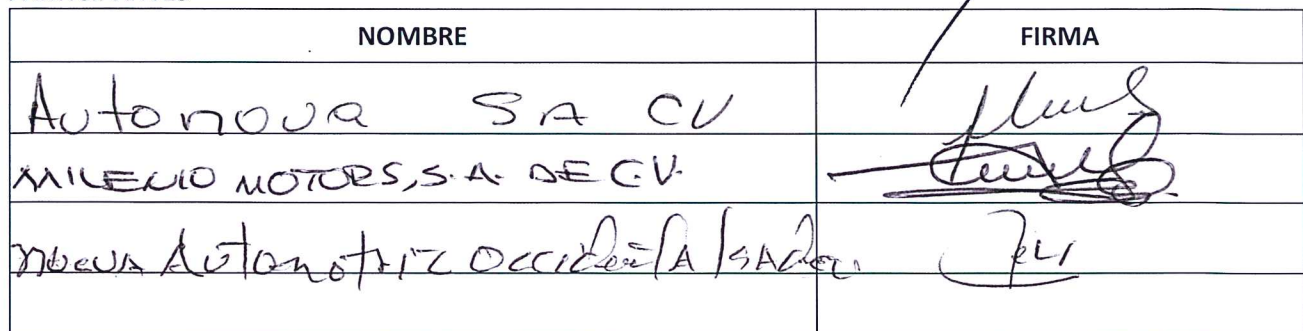 NOMBRE FIRMA
Autonova SA CV
MILENIO MOTORS, S.A. DE C.V.
nueva Automotriz Occidental SA de cv